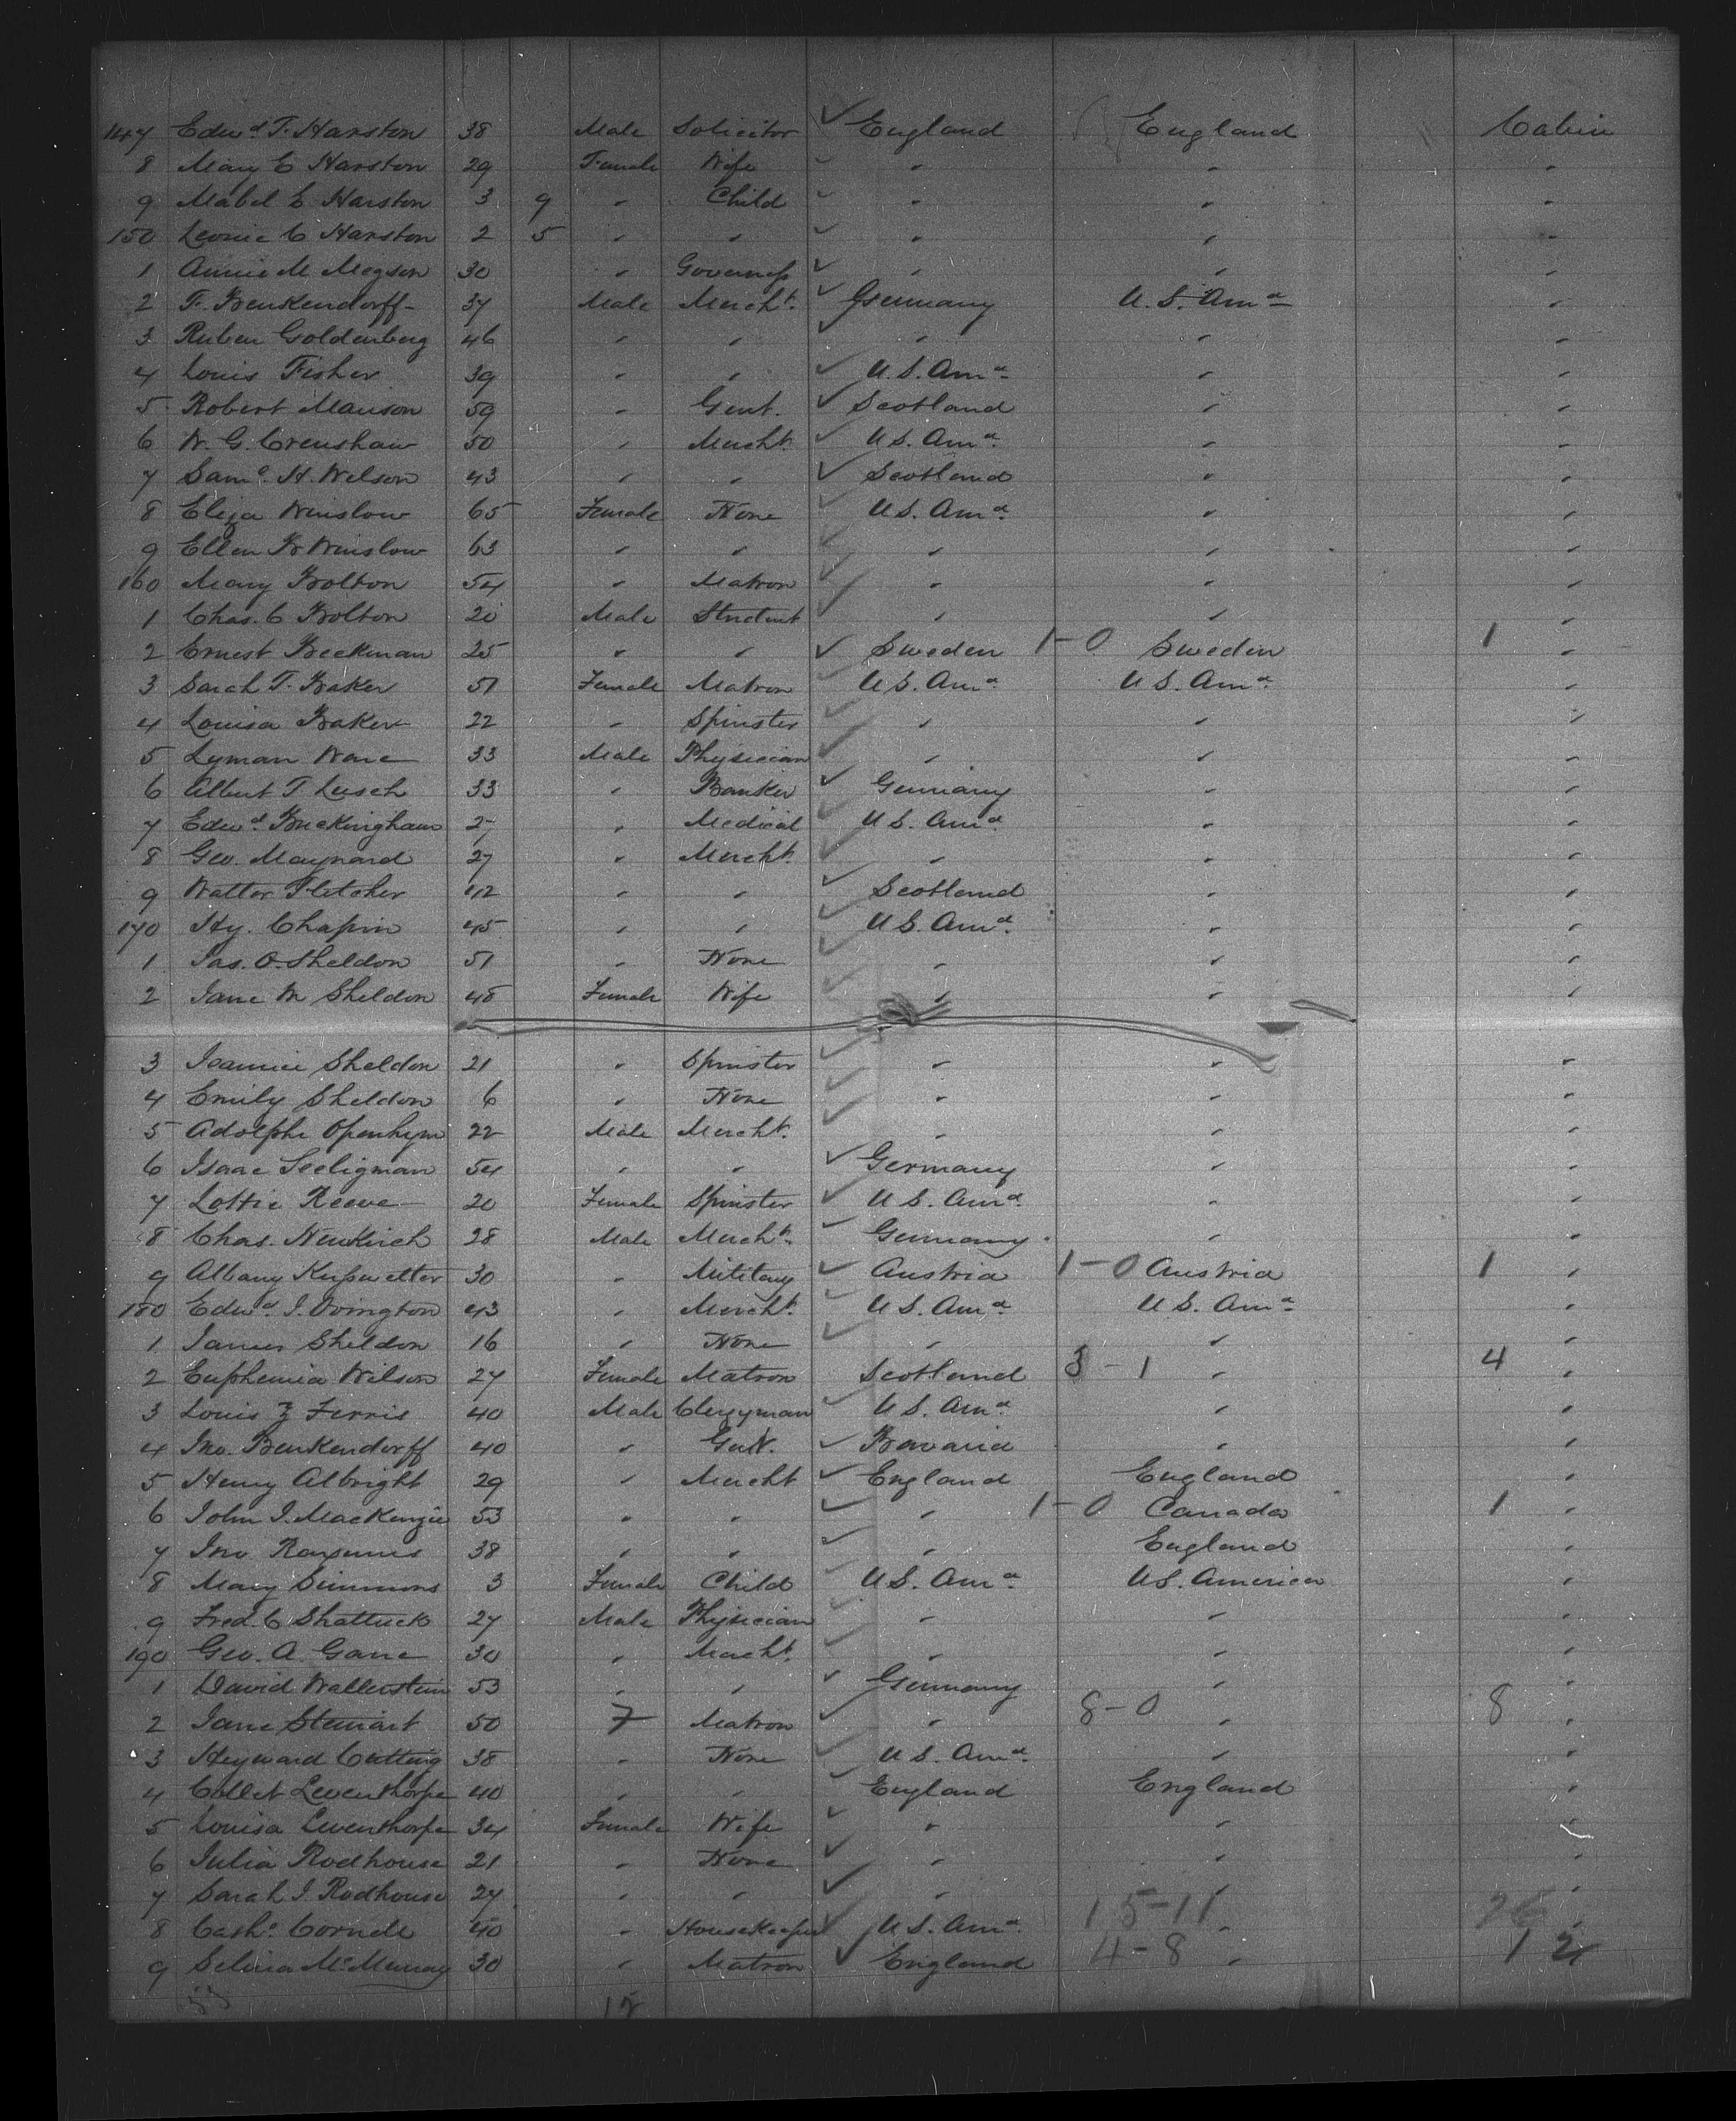 147 Edwd T. Harston 38 Male Solicitor ✓ England England Cabin
8 Mary E Harston 29 Female Wife ✓ " " "
9 Mabel E Harston 3 9 " Child ✓ " " "
150 Leonie C Harston 2 5 " " ✓ " " "
1 Annie M Megson 30 " Governess ✓ " " "
2 F. Benkendorff 37 Male Mercht. ✓ Germany U.S. Ama "
3 Ruben Goldenberg 46 " " ✓ " " "
4 Louis Fisher 39 " " ✓ U.S. Ama " "
5 Robert Manson 59 " Gent. ✓ Scotland " "
6 W. G. Crenshaw 50 " Mercht. ✓ U.S. Ama " "
7 Saml. H. Wilson 43 " " ✓ Scotland " "
8 Eliza Winslow 65 Female None ✓ U.S. Ama " "
9 Ellen W Winslow 63 " " ✓ " " "
160 Mary Bolton 54 " Matron ✓ " " "
1 Chas. C Bolton 20 Male Student ✓ " " "
2 Ernest Beckman 25 " " ✓ Sweden 1-0 Sweden 1 "
3 Sarah T. Baker 51 Female Matron ✓ U.S. Ama U.S. Ama "
4 Louisa Baker 22 " Spinster ✓ " " "
5 Lyman Ware 33 Male Physician ✓ " " "
6 Albert T Lusch 33 " Banker ✓ Germany " "
7 Edwd Buckingham " Medical ✓ U.S. Ama " "
8 Geo. Maynard 27 " Mercht. ✓ " " "
9 Walter Fletcher 42 " " ✓ Scotland " "
170 Hy. Chapin 45 " " ✓ U.S. Ama " "
1 Jas. O. Sheldon 51 " None ✓ " " "
2 Jane M Sheldon 48 Female Wife ✓ " " "
3 Jeannie Sheldon 21 " Spinster ✓ " " "
4 Emily Sheldon 6 " None ✓ " " "
5 Adolphe Openhym 22 Male Mercht. ✓ " " "
6 Isaac Seeligman 54 " " ✓ Germany " "
7 Lottie Reeve 20 Female Spinster ✓ U.S. Ama " "
8 Chas. Newkirch 28 Male Mercht. ✓ Germany " "
9 Albany 30 " Military ✓ Austria 1-0 Austria 1 "
180 Edwd J. Ovington 43 " Mercht. ✓ U.S. Ama U.S. Ama "
1 James Sheldon 16 " None ✓ " " "
2 Euphemia Wilson 27 Female Matron Scotland 3-1 " 4 "
3 Louis Z Ferris 40 Male Clergyman ✓ U.S. Ama " "
4 Jno. Benkendorff 40 " Gent. ✓ Bavaria " "
5 Henry Albright 29 " Mercht ✓ England England "
6 John J. MacKenzie 53 " " ✓ " 1-0 Canada 1 "
7 Jno 38 " " ✓ " England "
8 Mary Simmons 3 Female Child ✓ U.S. Ama U.S. America "
9 Fred. C Shattuck 27 Male Physician ✓ " " "
190 Geo. A. Gane 30 " Mercht. ✓ " " "
1 David Wallerstein 53 " " ✓ Germany " "
2 Jane Stewart 50 F Matron ✓ " 8-0 " 8 "
3 Heyward Cutting 38 " None ✓ U.S. Ama " "
4 Collet Leventhorpe 40 " " England England "
5 Louisa Leventhorpe 34 Female Wife ✓ " " "
6 Julia Rodhouse 21 " None ✓ " " "
7 Sarah J. Rodhouse 24 " " ✓ " " "
8 Cathe. Cornell 40 " Housekeeper ✓ U.S. Ama 15-11 " 26 "
9 Selina McMurray 30 " Matron ✓ England 4-8 " 12
53 12